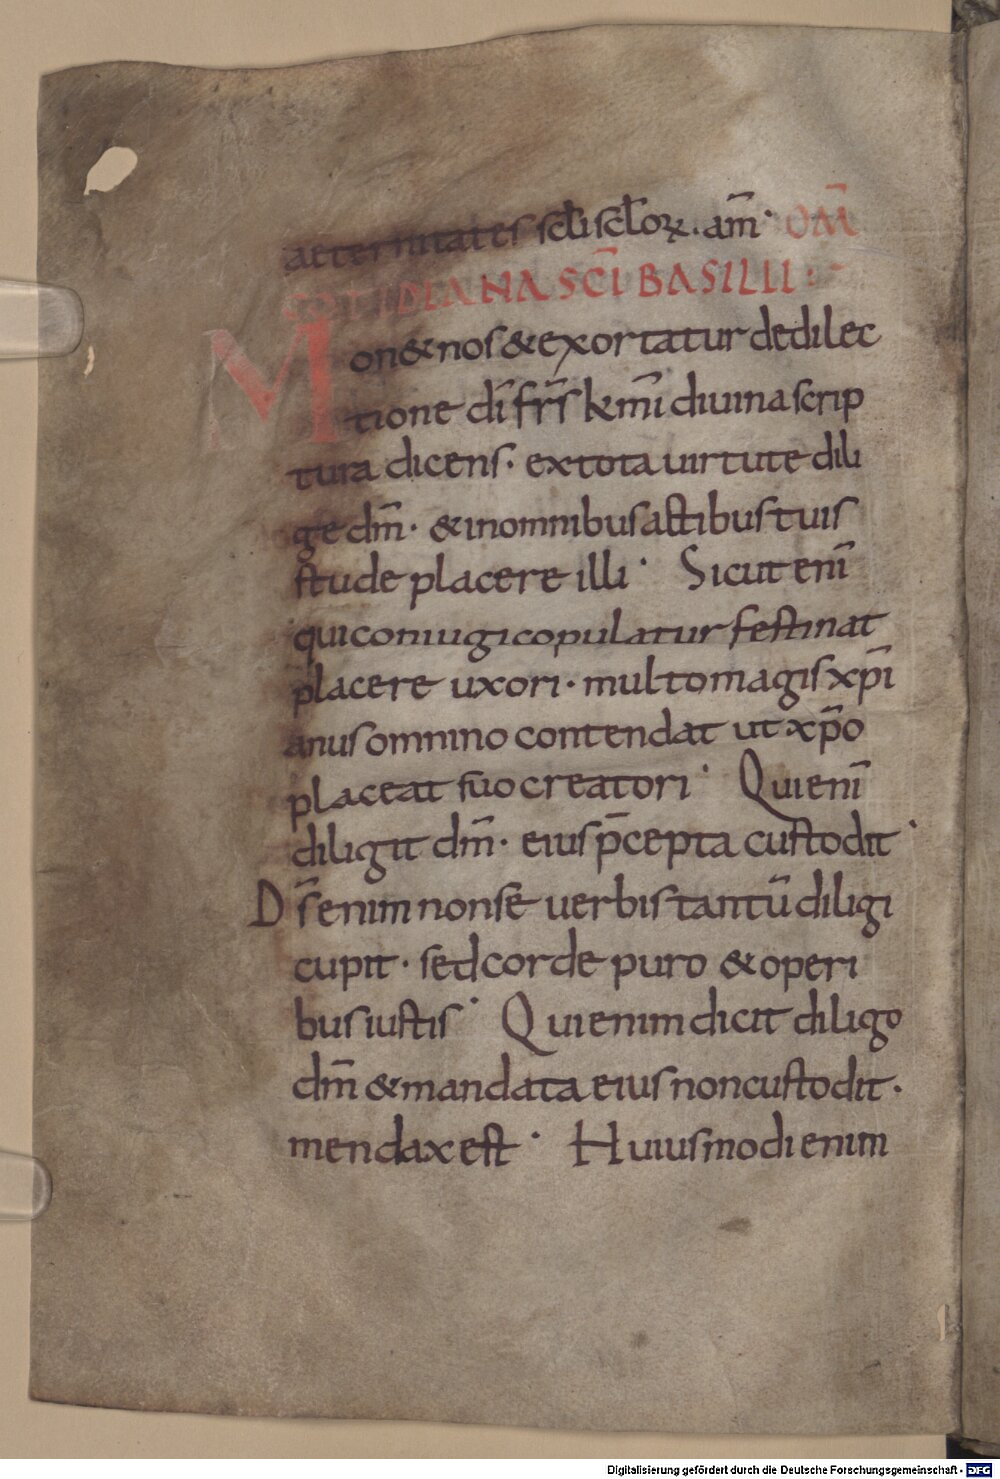 aeternitates scl̄i scl̄oꝝ. am̄· OM̄
COTIDIANA SC̄I BASILII :-
Mon&nos & exortatur dedilec
tione dī fr̄s km̄i diuina scrip
tura dicens· extota uirtute dili
ge dm̄· & inomnibus actibus tuis
stude placere illi· Sicut enī
qui coniugi copulatur festinat
placere uxori· multo magis xp̄i
anus omnino contendat ut xp̄o
placeat suo creatori· Qui enī
diligit dm̄· eius p̄cepta custodit·
Ds̄ enim non se uerbis tantū diligi
cupit· sed corde puro & operi
bus iustis· Qui enim dicit diligo
dm̄ & mandata eius non custodit·
mendax est· Huiusmodi enim
Digitalisierung gefördert durch die Deutsche Forschungsgemeinschaft - DFG